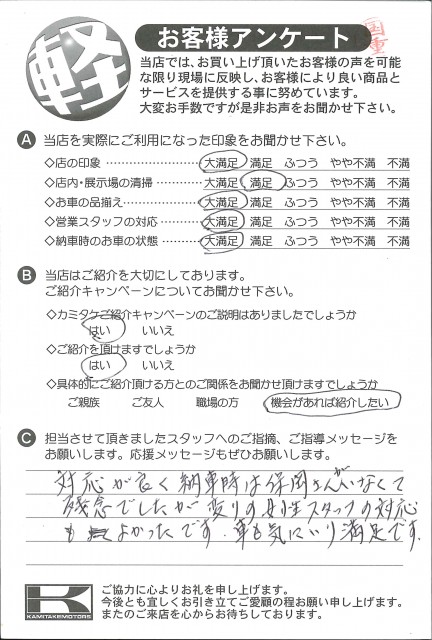 軽
お客様アンケート
国重
当店では、お買い上げ頂いたお客様の声を可能
な限り現場に反映し、お客様により良い商品と
サービスを提供する事に努めています。
大変お手数ですが是非お声をお聞かせ下さい。
A 当店を実際にご利用になった印象をお聞かせ下さい。
◇店の印象 ………………… 大満足 満足 ふつう やや不満 不満
◇店内・展示場の清掃 ……… 大満足 満足 ふつう やや不満 不満
◇お車の品揃え …………… 大満足 満足 ふつう やや不満 不満
◇営業スタッフの対応 ……… 大満足 満足 ふつう やや不満 不満
◇納車時のお車の状態 ……… 大満足 満足 ふつう やや不満 不満
B 当店はご紹介を大切にしております。
ご紹介キャンペーンについてお聞かせ下さい。
◇カミタケご紹介キャンペーンのご説明はありましたでしょうか
はい いいえ
◇ご紹介を頂けますでしょうか
はい いいえ
◇具体的にご紹介頂ける方とのご関係をお聞かせ頂けますでしょうか
ご親族 ご友人 職場の方 機会があれば紹介したい
C 担当させて頂きましたスタッフへのご指摘、ご指導メッセージを
お願いします。応援メッセージもぜひお願いします。
対応が良く納車時は保岡さんがいなくて
残念でしたが変りの女性スタッフの対応
も よかったです。車も気にいり満足です。
K
KAMITAKEMOTORS
ご協力に心よりお礼を申し上げます。
今後とも宜しくお引き立てご愛顧の程お願い申し上げます。
またのご来店を心からお待ちしております。